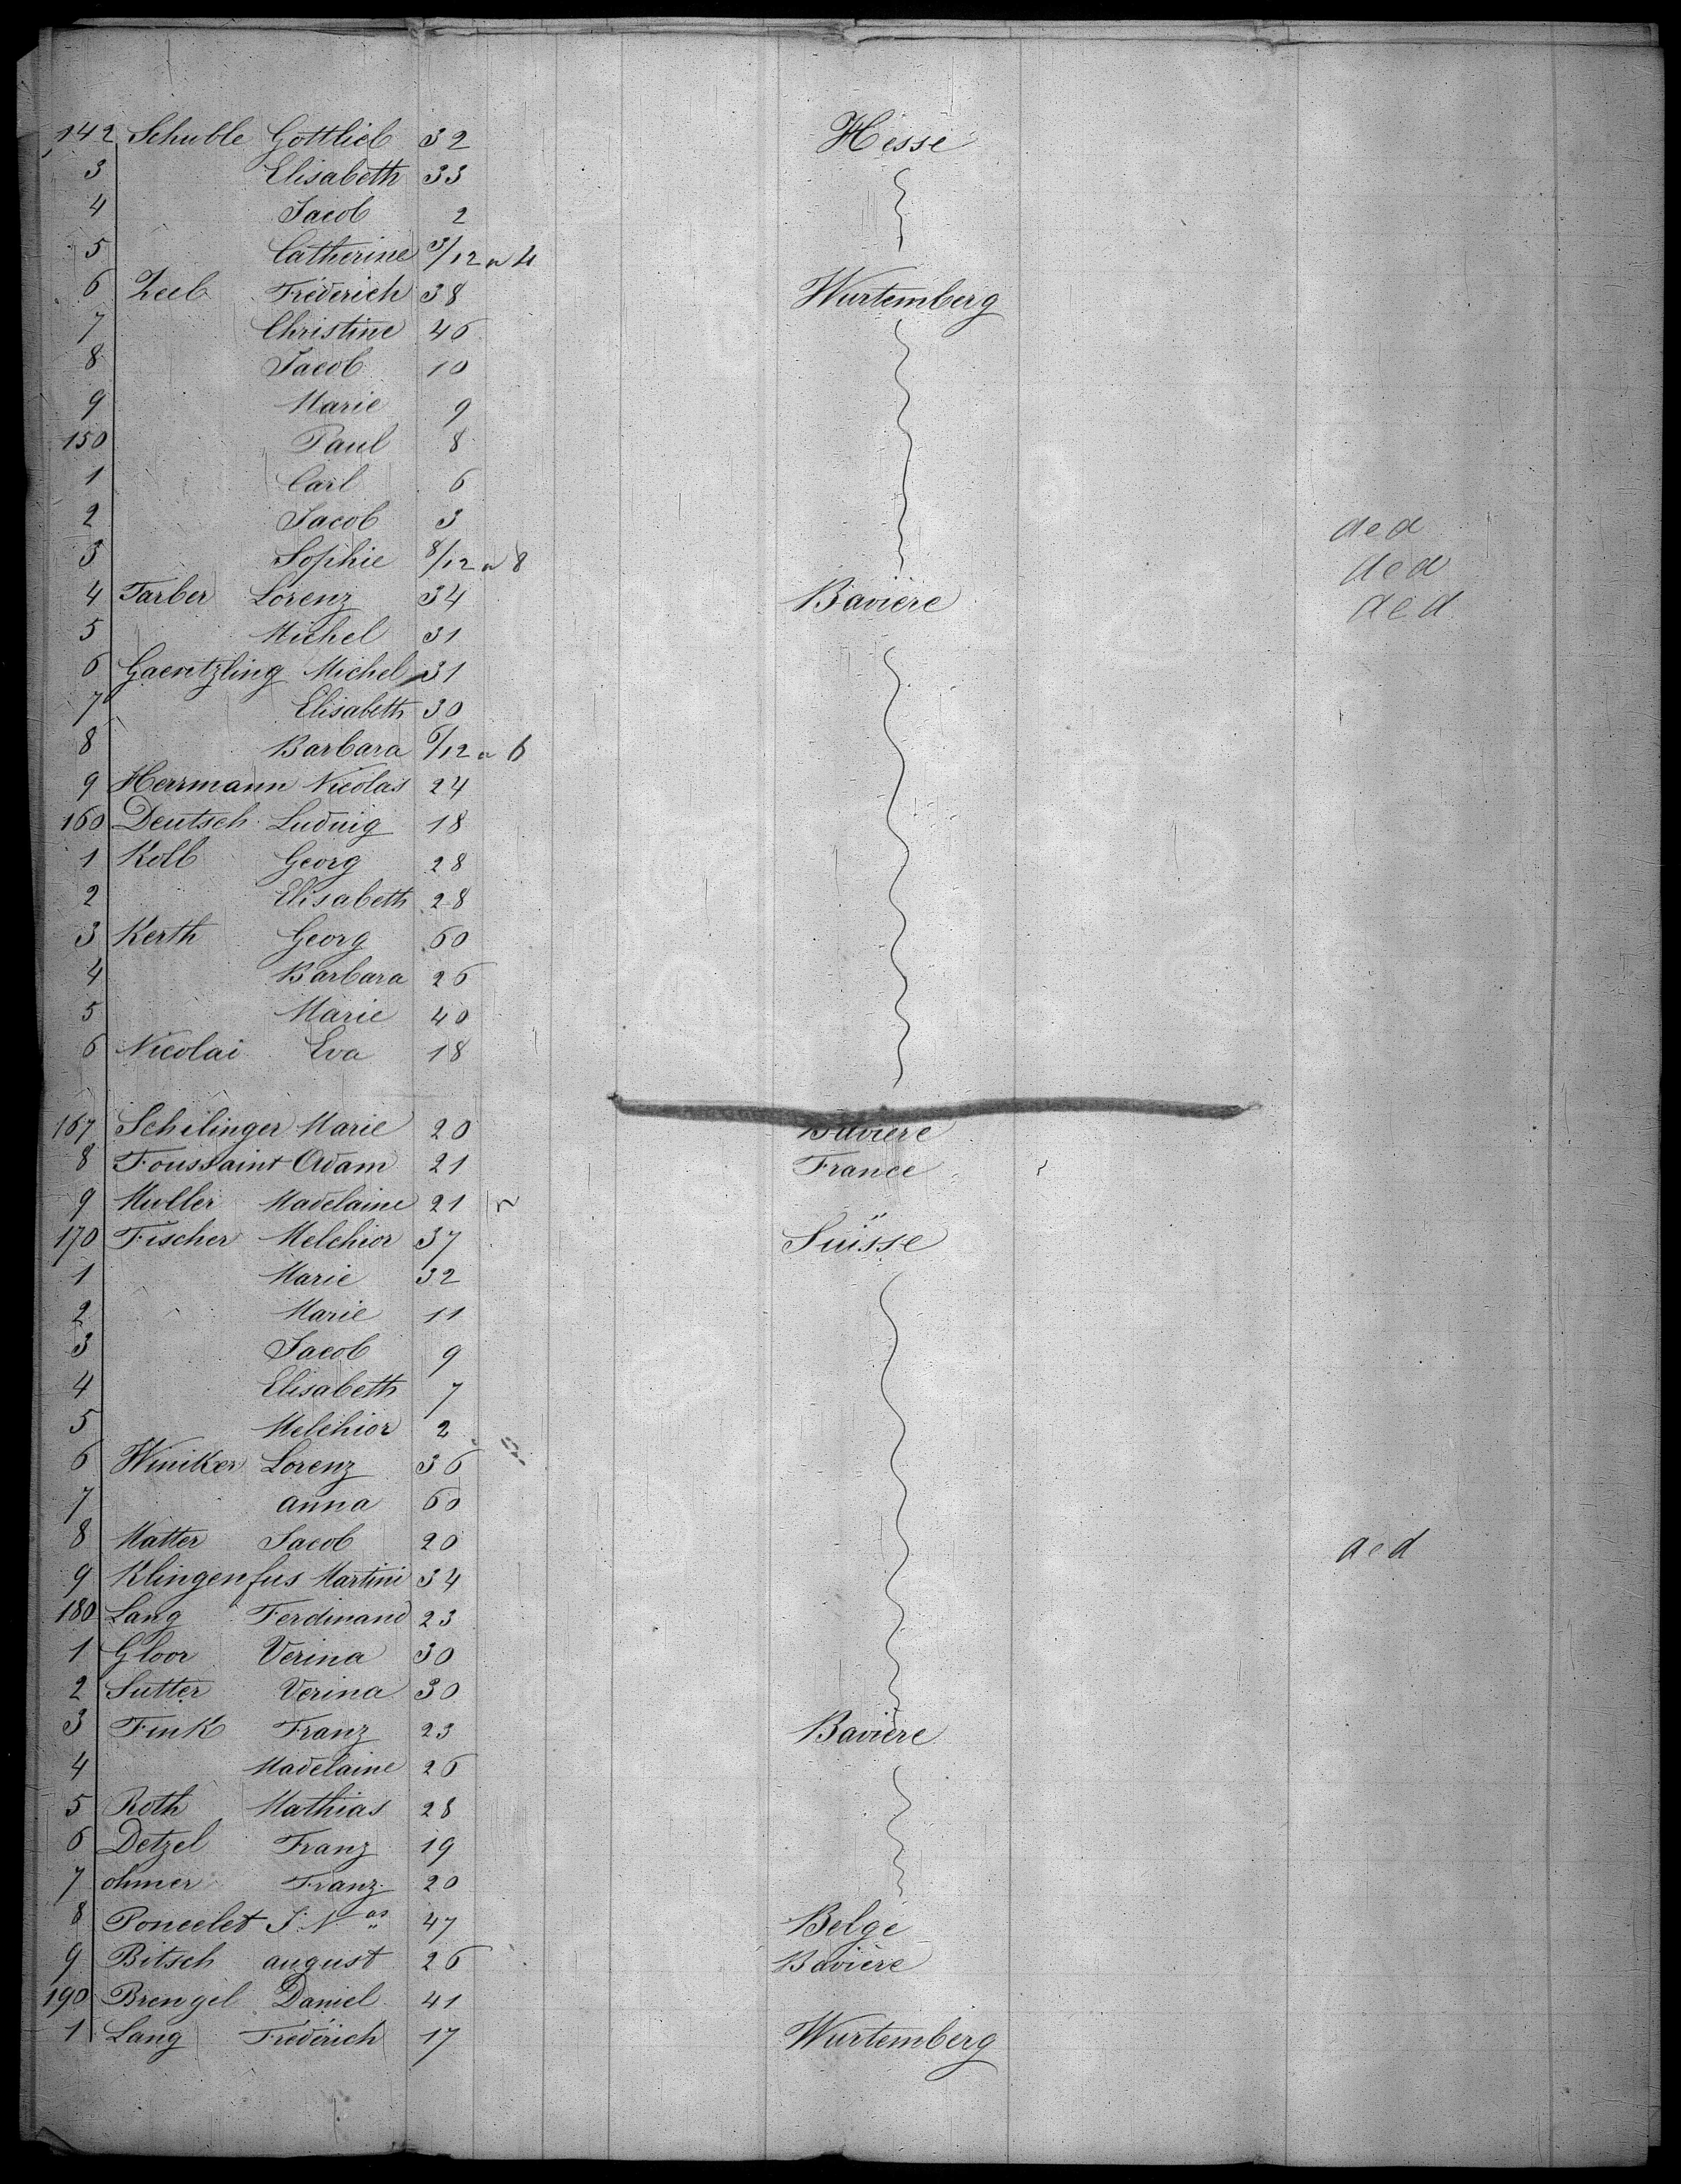 142 Schuble Gottlieb 32 Hesse
3 Elisabeth 33
4 Jacob 2
5 Catherine 3/12 4
6 Zeeb Fréderich 38 Wurtemberg
7 Christine 46
8 Jacob 10
9 Marie 9
150 Paul 8
1 Carl 6
2 Jacob 3 ded
3 Sophie 8/12 8 ded
4 Farber Lorenz 34 Bavière ded
5 Michel 31
6 Gaentzling Michel 31
7 Elisabeth 30
8 Barbara 6/12 6
9 Herrmann Nicolas 24
160 Deutsch Ludwig 18
1 Kolb Georg 28
2 Elisabeth 28
3 Kerth Georg 60
4 Barbara 26
5 Marie 40
6 Nicolai Eva 18
167 Schilinger Marie 20 Bavière
8 Toussaint Adam 21 France
9 Muller Madelaine 21 "
170 Fischer Melchior 37 Suisse
1 Marie 32
2 Marie 11
3 Jacob 9
4 Elisabeth 7
5 Melchior 2
6 Winiker Lorenz 36
7 anna 60
8 Matter Jacob 20 ded
9 Klingenfus Martini 34
180 Lang Ferdinand 23
1 Gloor Verina 30
2 Sutter Verina 30
3 Fink Franz 23 Bavière
4 Madelaine 26
5 Roth Mathias 28
6 Detzel Franz 19
7 ohmer Franz 20
8 Poncelet J. Nas 47 Belge
9 Bitsch august 26 Bavière
190 Brengel Daniel 41
1 Lang Fréderich 17 Wurtemberg